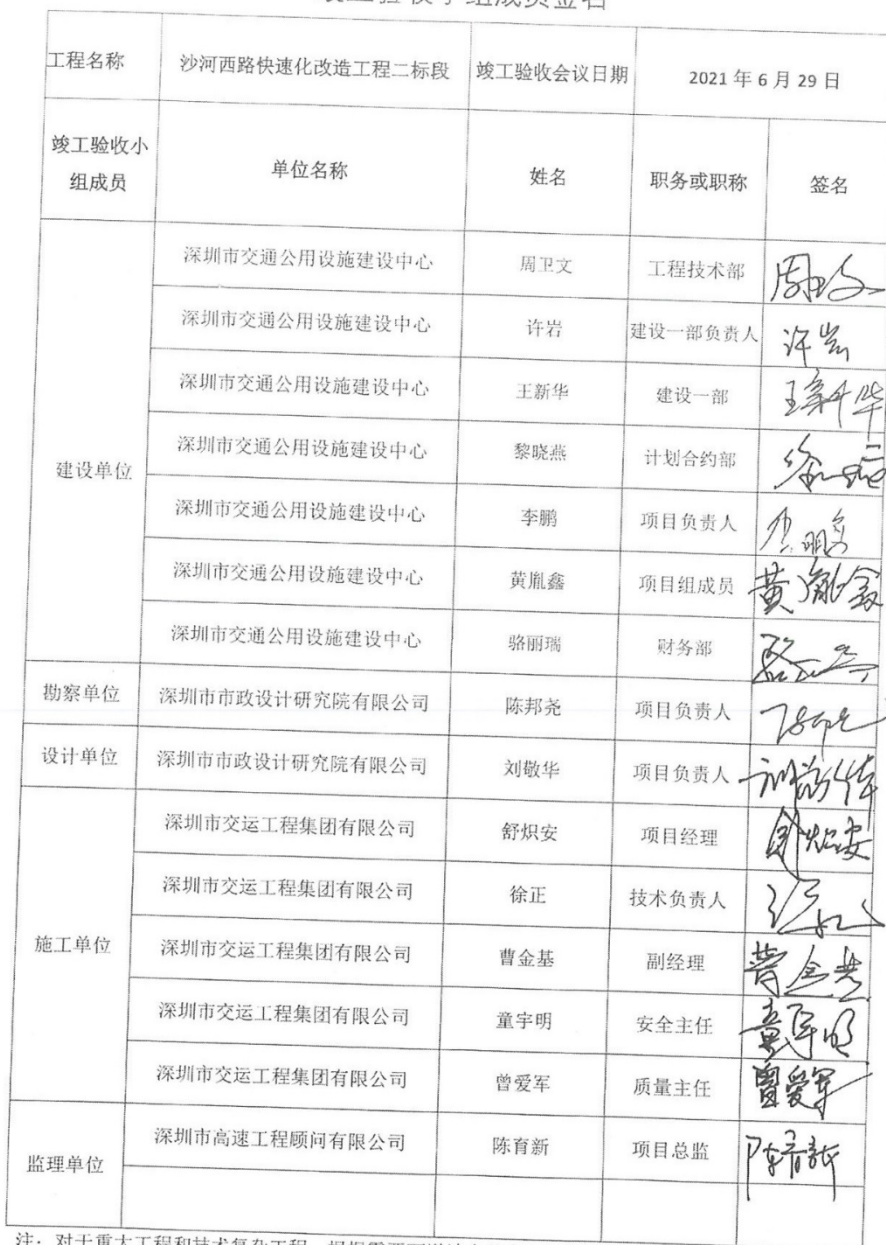 竣工验收小组成员签名
工程名称 沙河西路快速化改造工程二标段 竣工验收会议日期 2021 年 6 月 29 日
竣工验收小组成员 单位名称 姓名 职务或职称 签名
建设单位
深圳市交通公用设施建设中心 周卫文 工程技术部
深圳市交通公用设施建设中心 许岩 建设一部负责人 许岩
深圳市交通公用设施建设中心 王新华 建设一部 王新华
深圳市交通公用设施建设中心 黎晓燕 计划合约部
深圳市交通公用设施建设中心 李鹏 项目负责人 李鹏
深圳市交通公用设施建设中心 黄胤鑫 项目组成员 黄胤鑫
深圳市交通公用设施建设中心 骆丽瑞 财务部
勘察单位 深圳市市政设计研究院有限公司 陈邦尧 项目负责人
设计单位 深圳市市政设计研究院有限公司 刘敬华 项目负责人
施工单位
深圳市交运工程集团有限公司 舒炽安 项目经理
深圳市交运工程集团有限公司 徐正 技术负责人
深圳市交运工程集团有限公司 曹金基 副经理 曹金基
深圳市交运工程集团有限公司 童宇明 安全主任 童宇明
深圳市交运工程集团有限公司 曾爱军 质量主任 曾爱军
监理单位 深圳市高速工程顾问有限公司 陈育新 项目总监 陈育新
注：对于重大工程和技术复杂工程，根据需要可